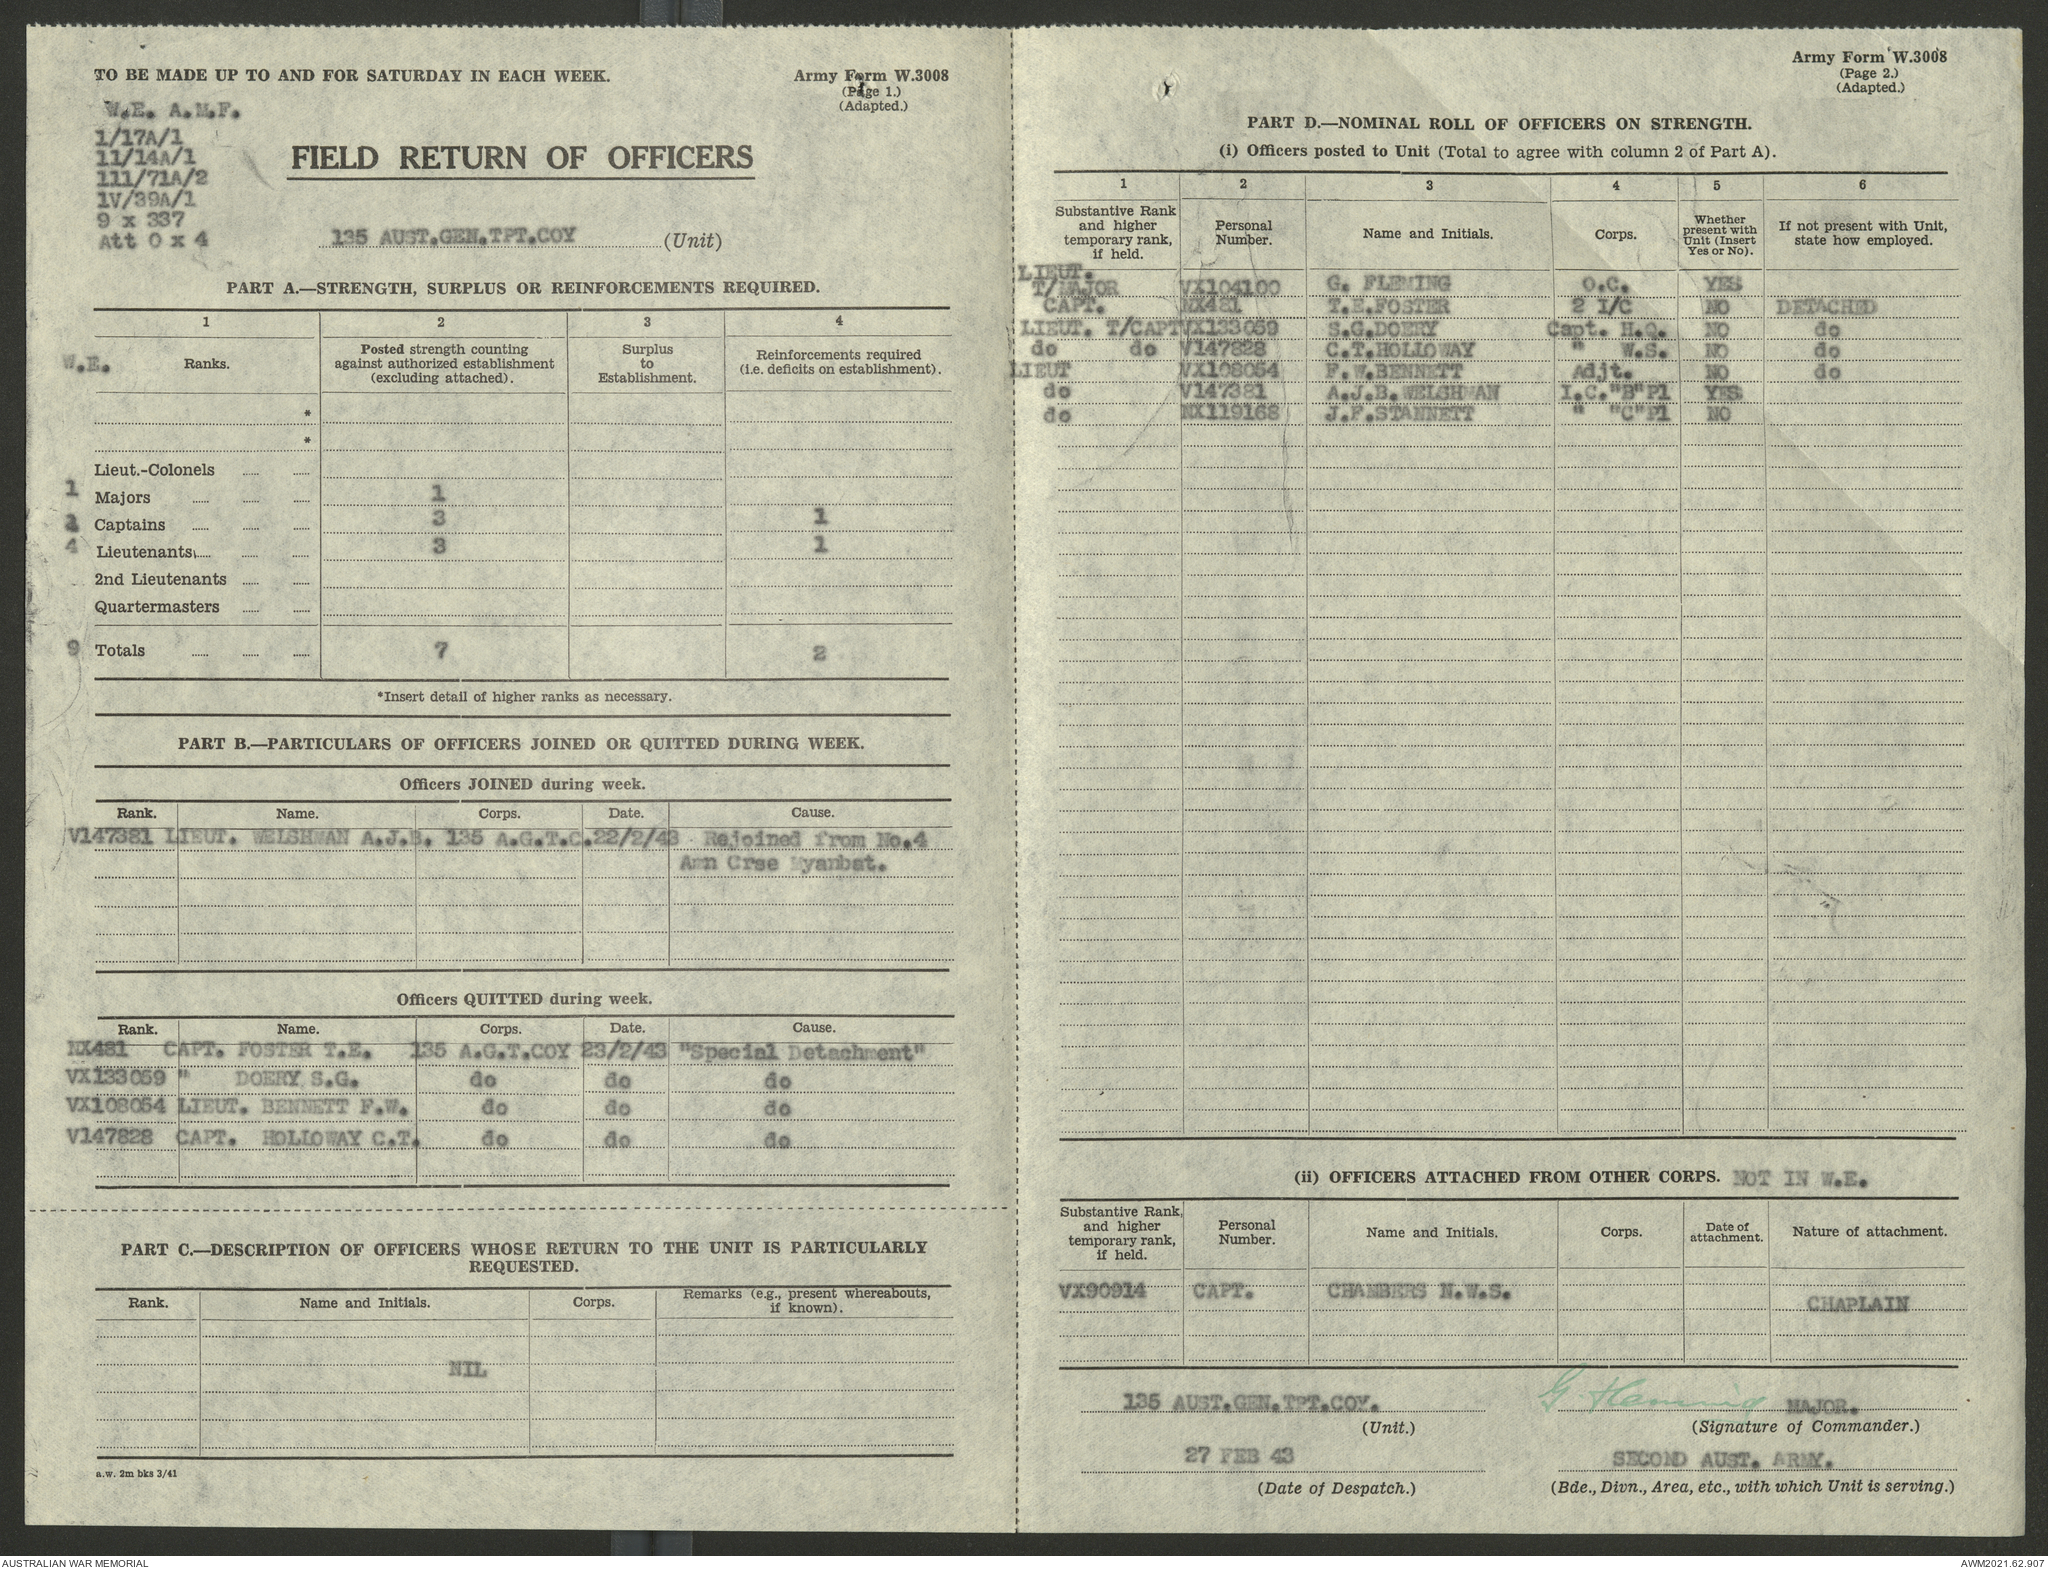 TO BE MADE UP TO AND FOR SATURDAY IN EACH WEEK.
Army Form W.3008
(Page 1.)
(Adapted.)
W.E. A.M.F.
1/17A/1
11/14A/1
111/71A/2
1V/39A/1
9 x 337
Att 0 x 4
FIELD RETURN OF OFFICERS
135 AUST.GEN.TPT.COY (Unit)
PART A.—STRENGTH, SURPLUS OR REINFORCEMENTS REQUIRED.
1 2 3 4
W.E. Ranks. Posted strength counting against authorized establishment (excluding attached). Surplus to Establishment. Reinforcements required (i.e. deficits on establishment).
*
*
Lieut.-Colonels
1 Majors 1
Captains 3 1
4 Lieutenants 3 1
2nd Lieutenants
Quartermasters
9 Totals 7 2
*Insert detail of higher ranks as necessary.
PART B.—PARTICULARS OF OFFICERS JOINED OR QUITTED DURING WEEK.
Officers JOINED during week.
Rank. Name. Corps. Date. Cause.
V147381 LIEUT. WELSHMAN A.J.B. 135 A.G.T.C. 22/2/43 Rejoined from No.4
Amn Crse Myambat.
Officers QUITTED during week.
Rank. Name. Corps. Date. Cause.
NX481 CAPT. FOSTER T.E. 135 A.G.T.COY 23/2/43 "Special Detachment"
VX133059 " DOERY S.G. do do do
VX108054 LIEUT. BENNETT F.W. do do do
V147828 CAPT. HOLLOWAY C.T. do do do
PART C.—DESCRIPTION OF OFFICERS WHOSE RETURN TO THE UNIT IS PARTICULARLY
REQUESTED.
Rank. Name and Initials. Corps. Remarks (e.g., present whereabouts, if known).
NIL
a.w. 2m bks 3/41
Army Form W.3008
(Page 2.)
(Adapted.)
PART D.—NOMINAL ROLL OF OFFICERS ON STRENGTH.
(i) Officers posted to Unit (Total to agree with column 2 of Part A).
1 2 3 4 5 6
Substantive Rank and higher temporary rank, if held. Personal Number. Name and Initials. Corps. Whether present with Unit (Insert Yes or No). If not present with Unit, state how employed.
LIEUT.
T/MAJOR VX104100 G. FLEMING O.C. YES
CAPT. NX481 T.E.FOSTER 2 I/C NO DETACHED
LIEUT. T/CAPT VX133059 S.G.DOERY Capt. H.Q. NO do
do do V147828 C.T.HOLLOWAY " W.S. NO do
LIEUT VX108054 F.W.BENNETT Adjt. NO do
do V147381 A.J.B.WELSHMAN I.C."B"Pl YES
do NX119168 J.F.STANNETT " "C"Pl NO
(ii) OFFICERS ATTACHED FROM OTHER CORPS. NOT IN W.E.
Substantive Rank, and higher temporary rank, if held. Personal Number. Name and Initials. Corps. Date of attachment. Nature of attachment.
VX90914 CAPT. CHAMBERS N.W.S.
CHAPLAIN
135 AUST.GEN.TPT.COY. G Fleming MAJOR.
(Unit.) (Signature of Commander.)
27 FEB 43 SECOND AUST. ARMY.
(Date of Despatch.) (Bde., Divn., Area, etc., with which Unit is serving.)
AUSTRALIAN WAR MEMORIAL
AWM2021.62.907